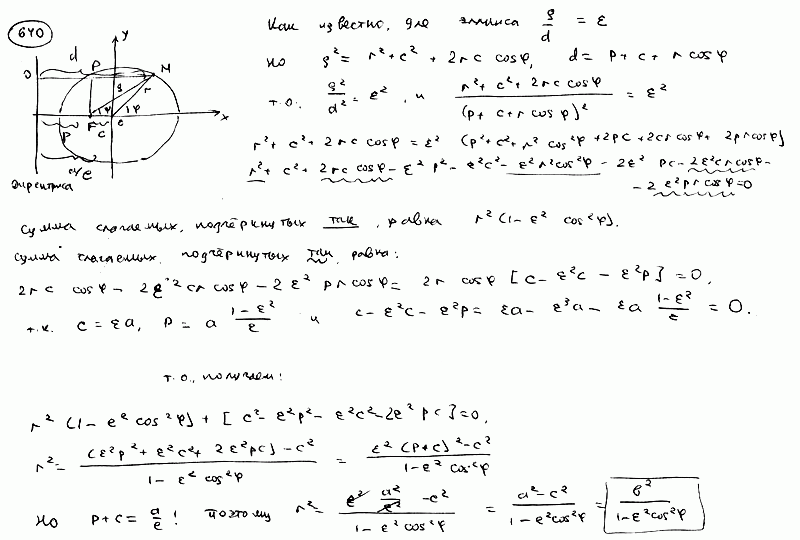 640
Как известно, для эллипса ρ/d = ε
но ρ² = r² + c² + 2rc cosφ, d = p + c + r cosφ
т.о. ρ²/d² = ε², и (r² + c² + 2rc cosφ)/(p + c + r cosφ)² = ε²
r² + c² + 2rc cosφ = ε² (p² + c² + r² cos²φ + 2pc + 2cr cosφ + 2pr cosφ)
r² + c² + 2rc cosφ - ε²p² - ε²c² - ε²r²cos²φ - 2ε² pc - 2ε²cr cosφ -
- 2ε²pr cosφ = 0
d P y
D M
ρ r
φ φ
P F c e x
a/e
Директриса
Сумма слагаемых, подчёркнутых так, равна r²(1 - ε² cos²φ).
Сумма слагаемых, подчёркнутых так, равна:
2rc cosφ - 2ε²cr cosφ - 2ε² pr cosφ = 2r cosφ [c - ε²c - ε²p] = 0,
т.к. c = εa, p = a (1-ε²)/ε и c - ε²c - ε²p = εa - ε³a - εa (1-ε²)/ε = 0.
т.о., получаем:
r² (1 - e² cos²φ) + [c² - ε²p² - ε²c² - 2e² pc] = 0,
r² = ((ε²p² + ε²c² + 2ε²pc) - c²)/(1 - ε² cos²φ) = (ε² (p+c)² - c²)/(1 - ε² cos²φ)
Но p+c = a/e ! поэтому r² = (e² a²/e² - c²)/(1 - ε² cos²φ) = (a² - c²)/(1 - ε²cos²φ) = b²/(1 - ε²cos²φ)